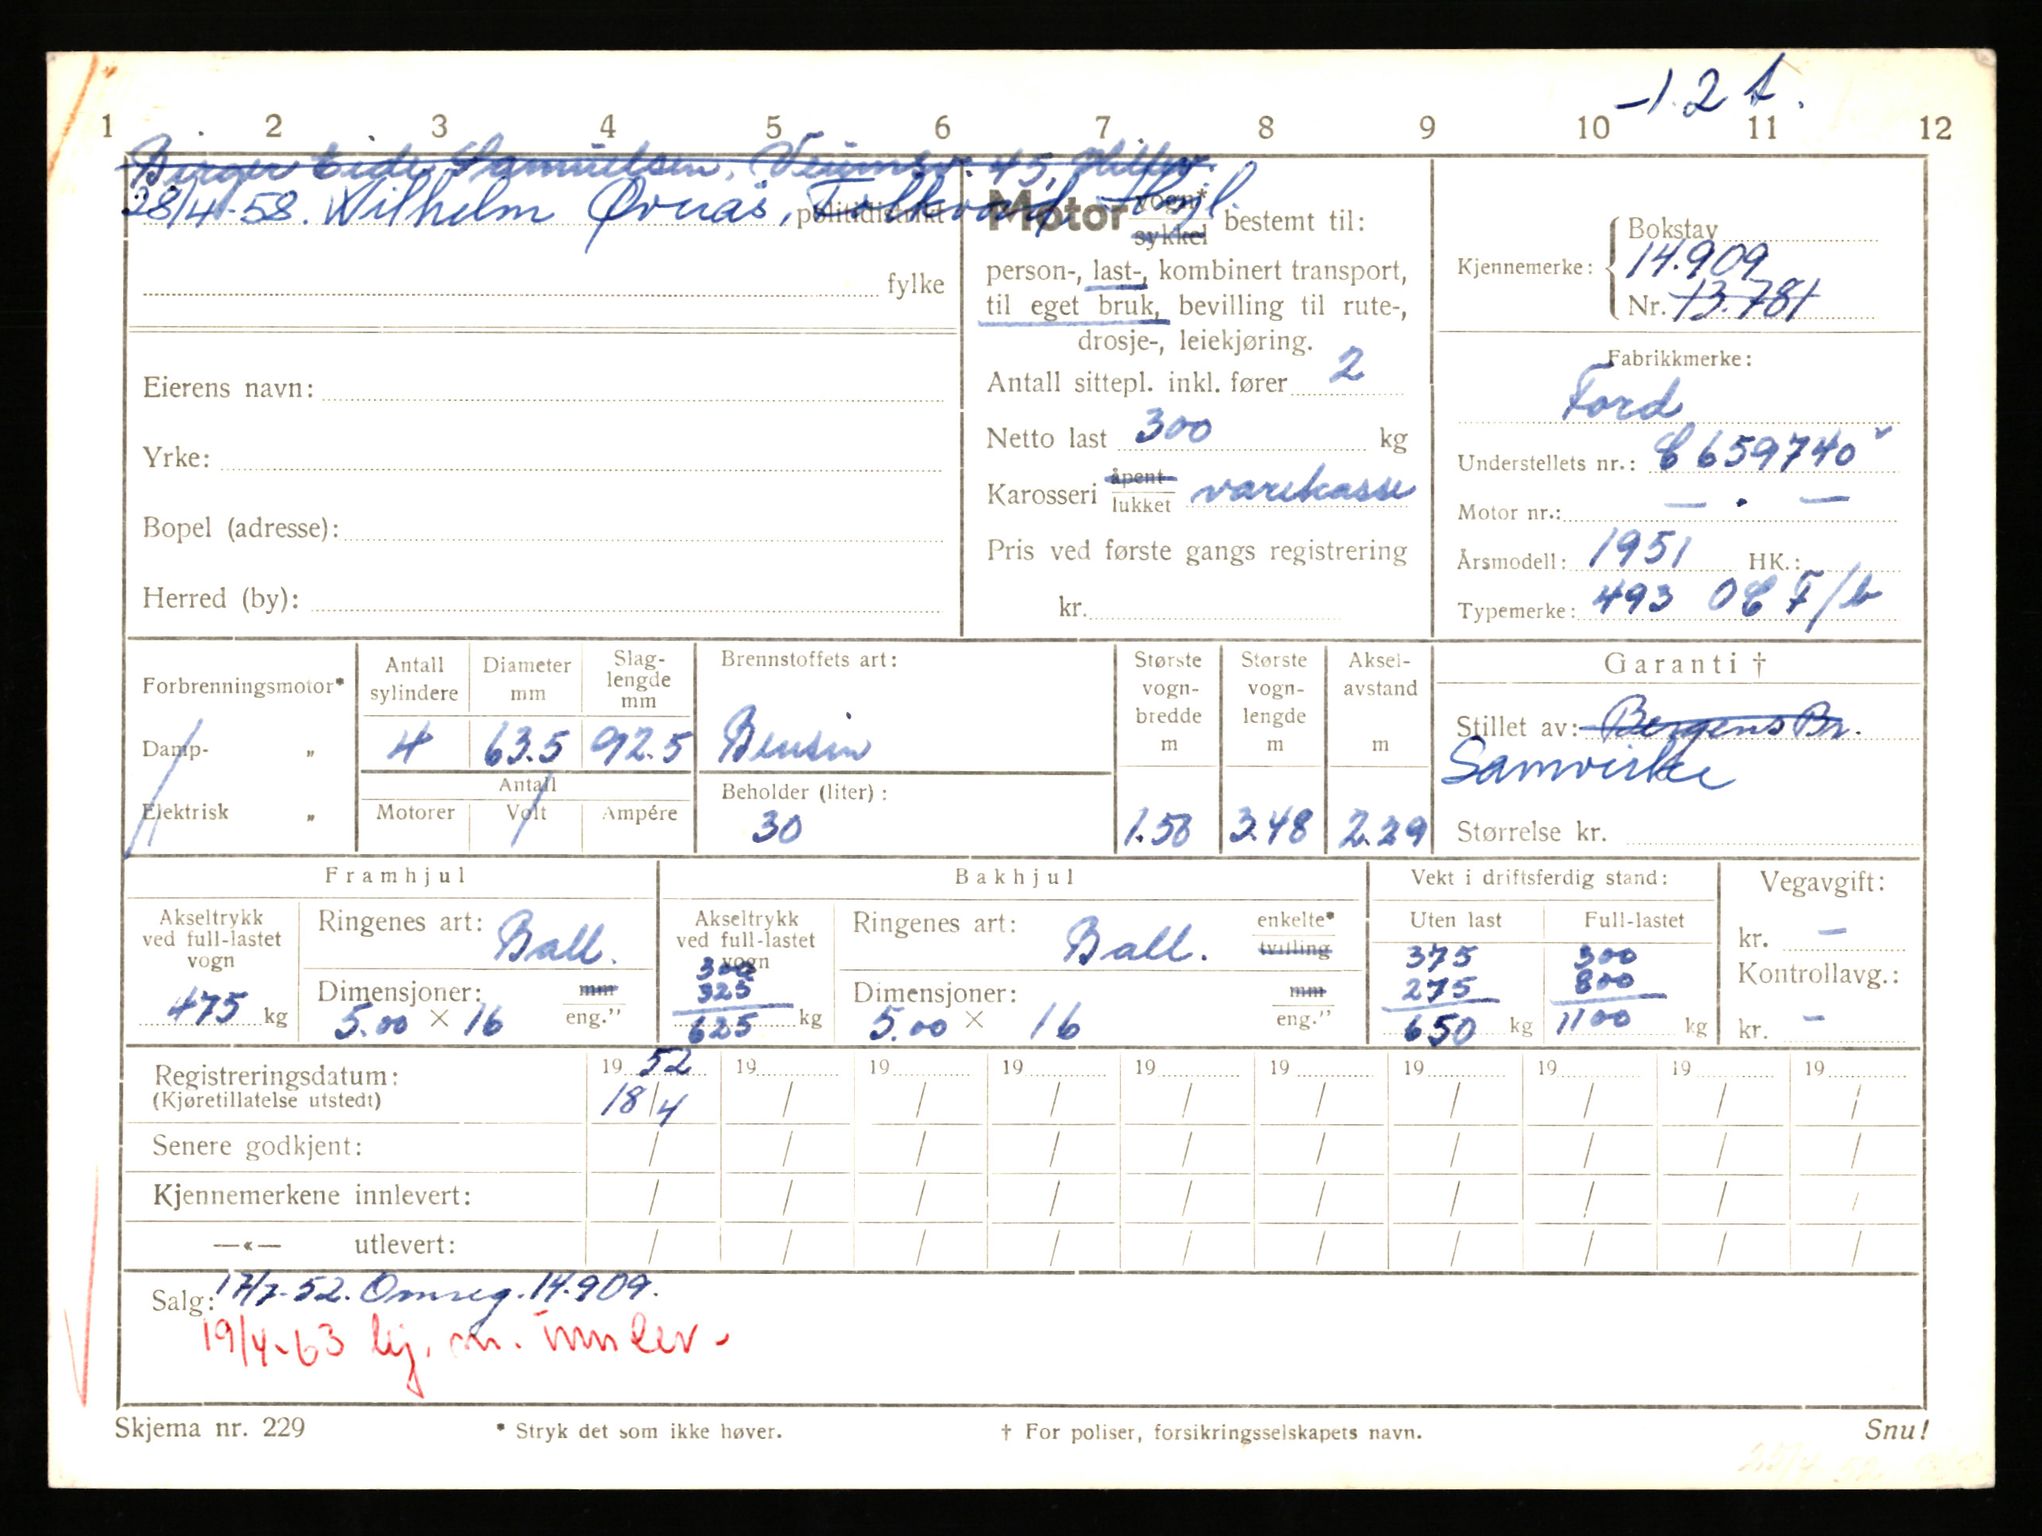 -1.2 t.
1 2 3 4 5 6 7 8 9 10 11 12
Birger Eide Samuelsen, 45,
28/4-58. Wilhelm Øvreås, Folkvord, Høyl.
politidistrikt
fylke
Eierens navn:
Yrke:
Bopel (adresse):
Herred (by):
Motor vogn* sykkel bestemt til:
person-, last-, kombinert transport,
til eget bruk, bevilling til rute-,
drosje-, leiekjøring.
Antall sittepl. inkl. fører 2
Netto last 300 kg
Karosseri åpent lukket varekasse
Pris ved første gangs registrering
kr.
Bokstav
Kjennemerke: 14.909
Nr. 13.781
Fabrikkmerke:
Ford
Understellets nr.: C 659740
Motor nr.: — . —
Årsmodell: 1951 HK.:
Typemerke: 493 OC F/b
Forbrenningsmotor*
Damp- „
Elektrisk „
Antall sylindere
4
Diameter mm
63.5
Slag-lengde mm
92.5
Antall
Motorer Volt Ampére
Brennstoffets art:
Bensin
Beholder (liter):
30
Største vogn-bredde m
1.50
Største vogn-lengde m
3.48
Aksel-avstand m
2.29
Garanti †
Stillet av: Bergens Br.
Samvirke
Størrelse kr.
Framhjul
Akseltrykk ved full-lastet vogn
475 kg
Ringenes art: Ball.
Dimensjoner: mm
5.00 × 16 eng."
Bakhjul
Akseltrykk ved full-lastet vogn
300
325
625 kg
Ringenes art: Ball. enkelte* tvilling
Dimensjoner: mm
5.00 × 16 eng."
Vekt i driftsferdig stand:
Uten last Full-lastet
375 300
275 800
650 kg 1100 kg
Vegavgift:
kr. —
Kontrollavg.:
kr. —
Registreringsdatum: 19 52 19 19 19 19 19 19 19 19 19
(Kjøretillatelse utstedt) 18/4 / / / / / / / / /
Senere godkjent: / / / / / / / / / /
Kjennemerkene innlevert: / / / / / / / / / /
—«— utlevert: / / / / / / / / / /
Salg: 17/7-52. Omreg. 14.909.
19/4-63 kj. m. innlev-
Skjema nr. 229 * Stryk det som ikke høver. † For poliser, forsikringsselskapets navn. Snu!